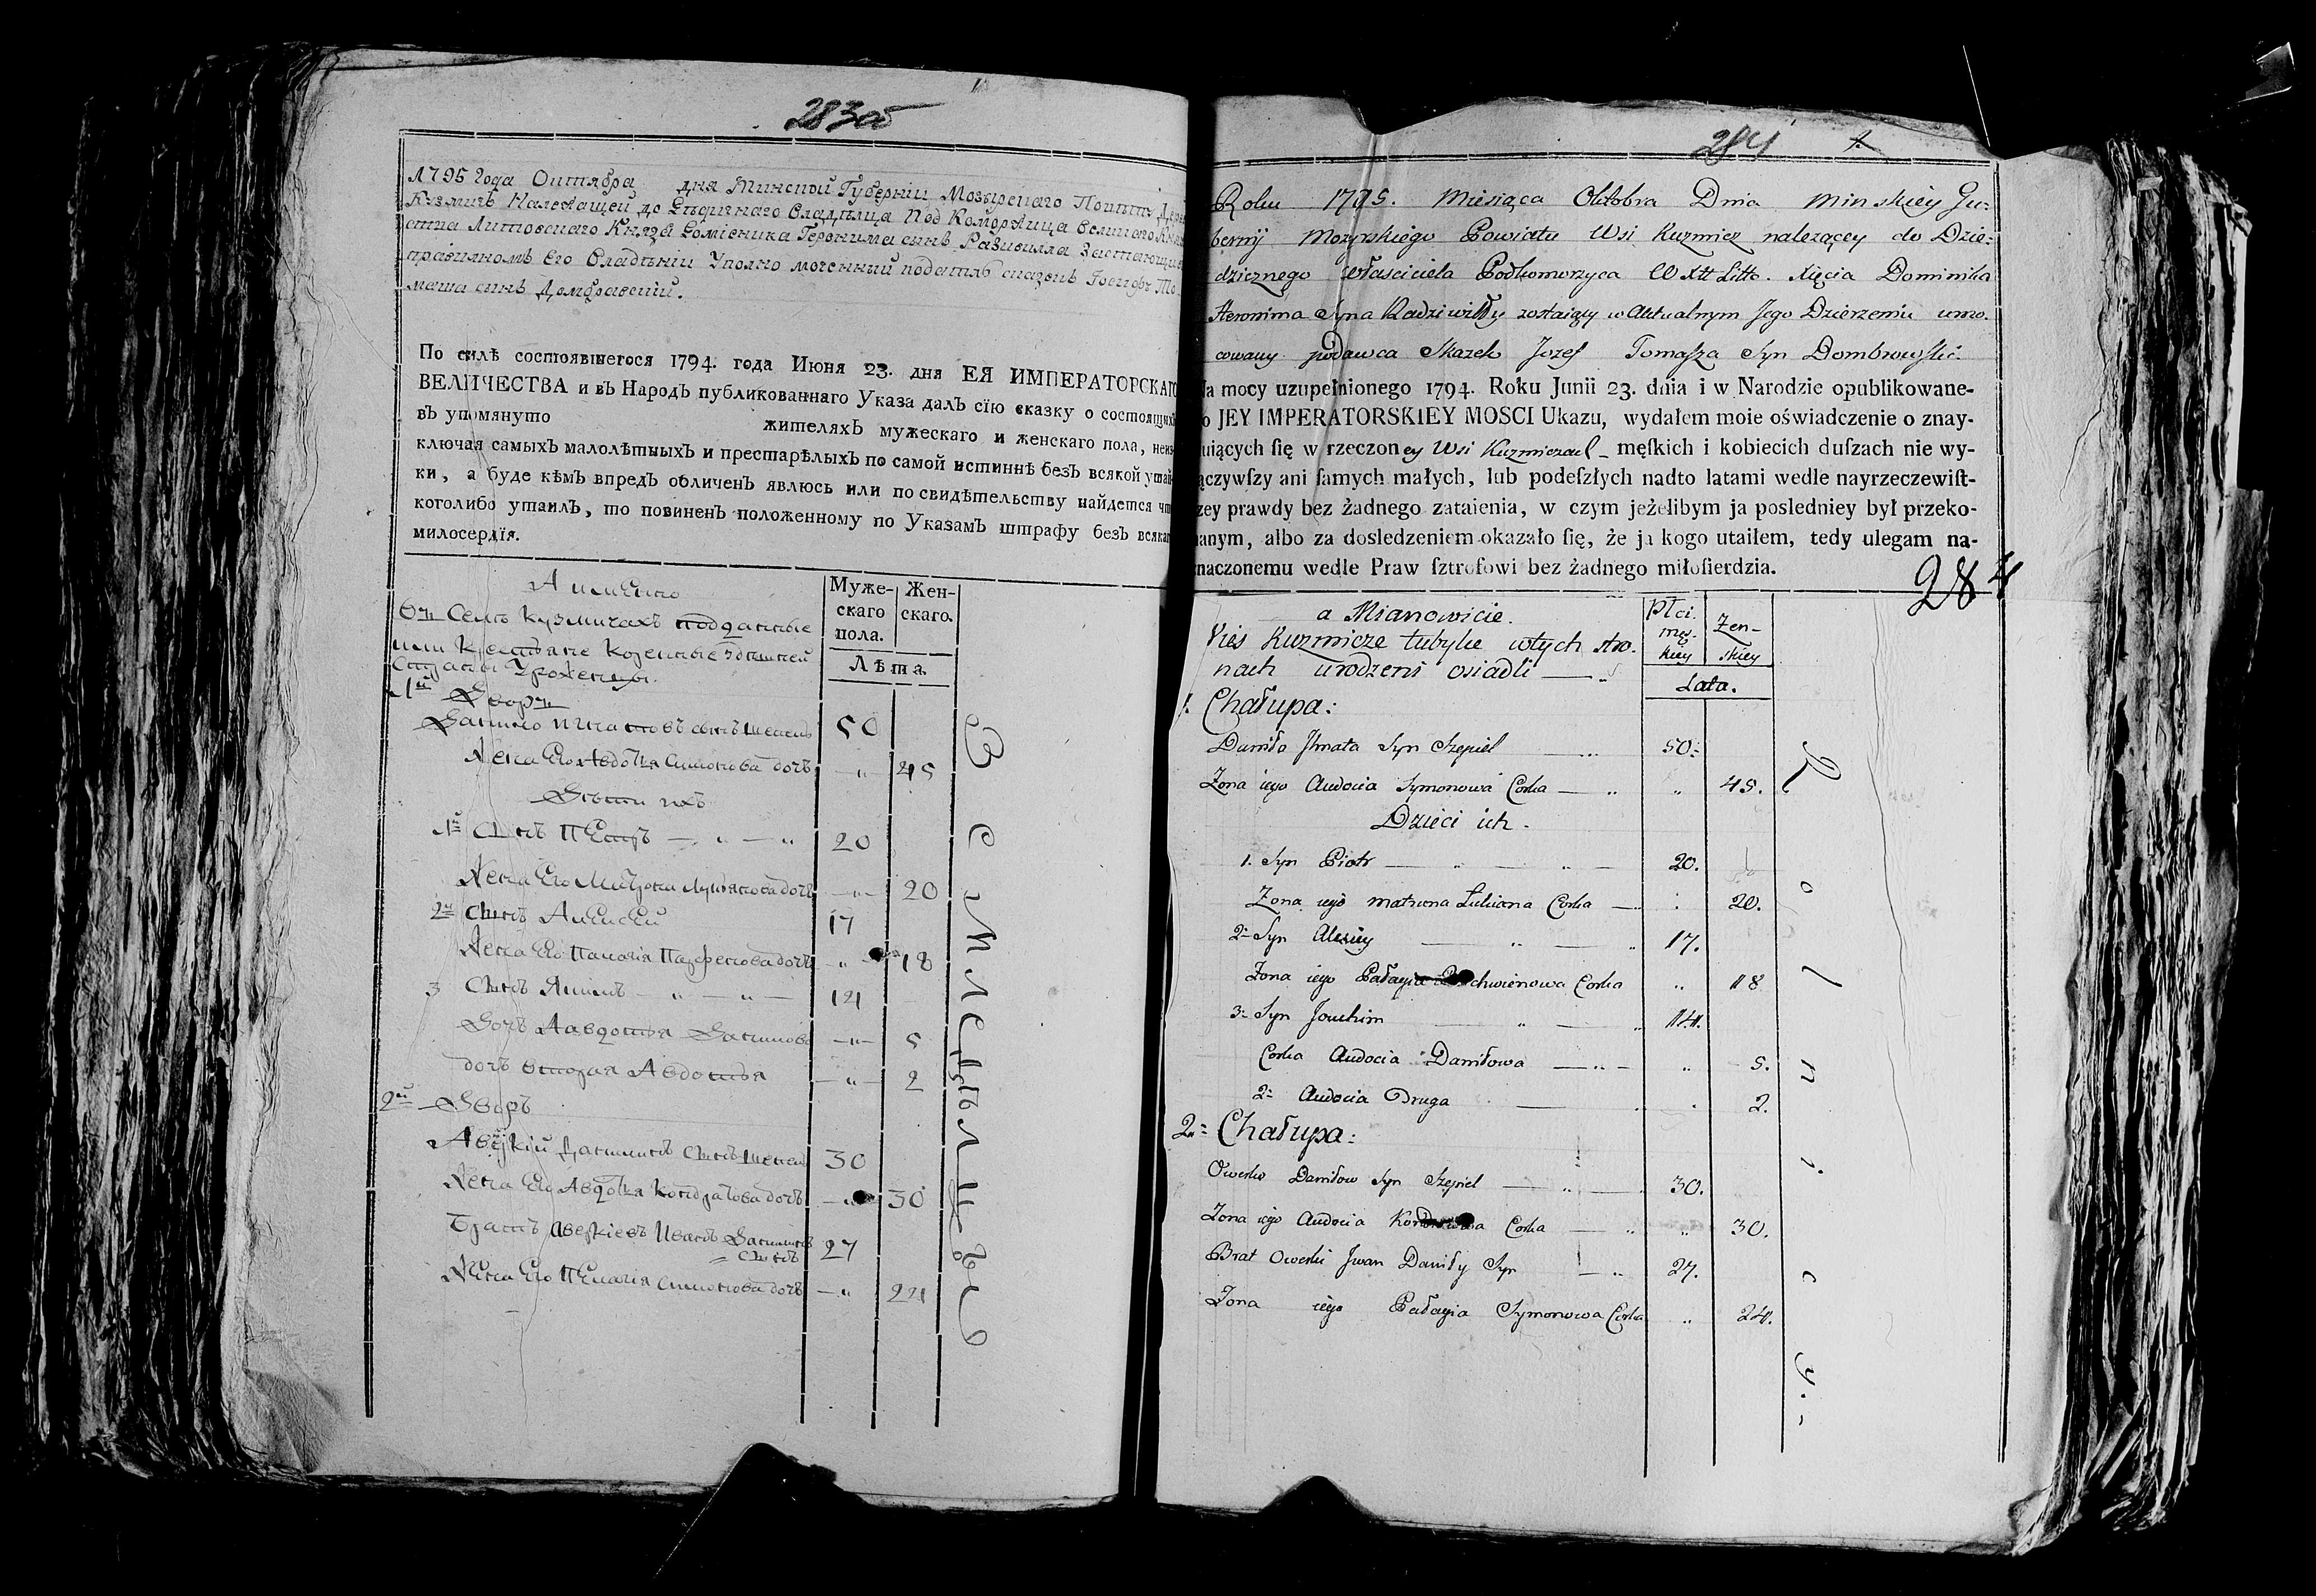 283об
1795 Года Октября дня Минской Губернии Мозырскаго Повѣта Дерев
Кузмичъ Належащей до владѣльца Под Коморжица Великого Княж
ства Литовскаго Князя Доминика Геронима сынъ Радзивилла
Его Владѣнии Уполно моченный податль сказокъ То
маша сынъ Домбровский.
По силѣ состоявшегося 1794. года Июня 23. дня ЕЯ ИМПЕРАТОРСКАГО
ВЕЛИЧЕСТВА и въ Народъ публикованнаго Указа далъ сїю сказку о состоящихъ
въ упомянуто жителяхъ мужескаго и женскаго пола, неиз
ключая самыхъ малолѣтныхъ и престарѣлыхъ по самой истиннѣ безъ всякой утай
ки, а буде кѣмъ впредъ обличенъ явлюсь или по свидѣтельству найдется что
коголибо утаилъ, то повиненъ положенному по Указамъ штрафу безъ всякаго
милосердїя.
А имЕнно
Въ Селѣ Кузмичахъ подданные
или Крестьяне Коренные здѣшней
Страны Урожен
Муже-
скаго
пола.
Жен-
скаго.
Лѣта.
1й Дворъ
Данило Игнатовъ сынъ Шепель 50
Жена Его Авдотья Симонова дочъ 45
Дѣти ихъ
1й Сынъ ПЕтръ 20
Жена Его Матрона Лукьянова дочъ 20
2й Сынъ АлЕксЕй 17
Жена Его Палагія Парфенова дочъ 18
3 Сынъ Якимъ 14
Дочъ Авдотья Данилова 5
дочъ вторая Авдотья 2
2й Дворъ
Аверкій Данилинъ Сынъ Шепель 30
Жена Его Авдотья Кондратова дочъ 30
Братъ Аверкіевъ Иванъ Данилинъ
Сынъ 27
Жена Его ПЕлагія Симонова дочъ 24
Земледѣльцы
284
Roku 1795. Miesiąca Oktobra Dnia Minskiey Gu:
bernij Mozyrskiego Powiatu Wsi Kuzmicz należącey do Dzie:
dzicznego właściciela Podkomorzyca W X Litto. Xięcia Dominika
Heronima Syna Radziwiłły zostaiący w Aktualnym Jego Dzierzeniu umo.
cowany podawca Skazek Jozef Tomasza Syn Dombrowski.
Na mocy uzupełnionego 1794. Roku Junii 23. dnia i w Narodzie opublikowane-
o JEY IMPERATORSKIEY MOSCI Ukazu, wydałem moie oświadczenie o znay-
uiących ſię w rzeczoney Wsi Kuzmiczach męſkich i kobiecich duſzach nie wy-
ączywſzy ani ſamych małych, lub podeſzłych nadto latami wedle nayrzeczewiſt-
zey prawdy bez żadnego zataienia, w czym jeżelibym ja posledniey był przeko-
anym, albo za dosledzeniem okazało ſię, że ja kogo utaiłem, tedy ulegam na-
naczonemu wedle Praw ſztrofowi bez żadnego miłoſierdzia.
284
a Mianowicie.
Wieś Kuzmicze tubylce wtych stro.
nach urodzeni osiadli
Płci.
męs-
kiey
Żen-
skiey
Lata.
1. Chałupa:
Daniło Ihnata Syn Szepiel 50.
Zona iego Audocia Symonowa Corka 45.
Dzieci ich.
1. Syn Piotr 20.
Zona iego Matrona Łukiana Corka 20.
2. Syn Alexiey 17.
Zona iego Pałagia chwienowa Corka 18
3. Syn Joachim 14.
Corka Audocia Daniłowa 5.
2. Audocia Druga 2.
2. Chałupa:
Owerko Daniłow Syn Szepiel 30.
Zona iego Audocia Corka 30.
Brat Owerki Jwan Daniły Syn 27.
Zona iego Pałagia Symonowa Corka 24.
Rolnicy.